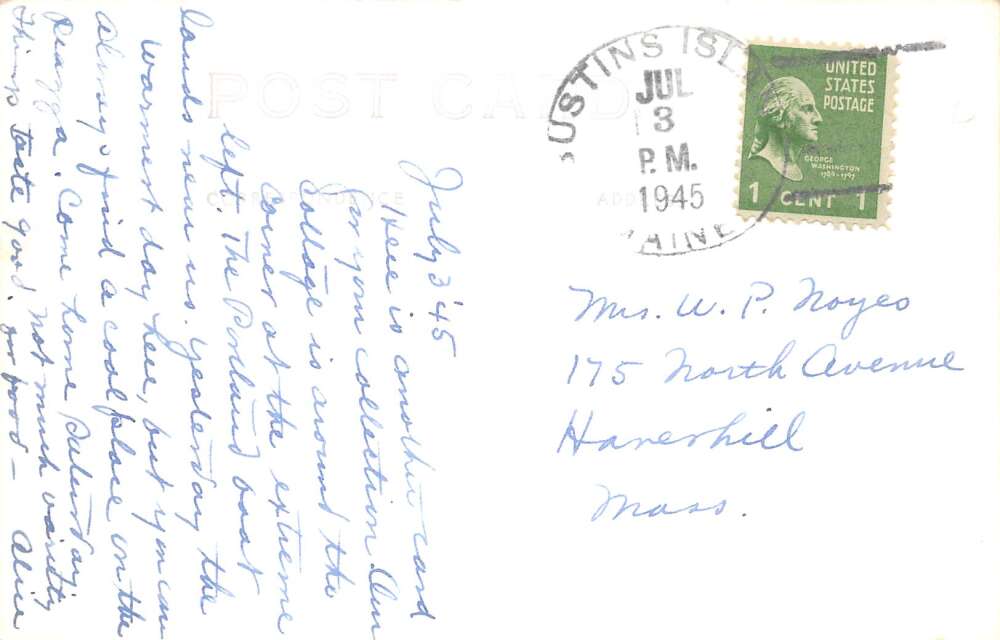 POST CARD
CORRESPONDENCE
ADDRESS
July 3 '45
Here is another card
for your collection. Our
Cottage is around the
corner at the extreme
left. The Portland boat
lands near us. Yesterday the
warmest day here, but you can
always find a cool place on the
piazza. Come home Saturday.
Things taste good. Not much variety
in food — Alice
USTINS ISL
JUL
3
P.M.
1945
AINE
UNITED
STATES
POSTAGE
GEORGE
WASHINGTON
1789-1797
1 CENT 1
Mrs. W. P. Noyes
175 North Avenue
Haverhill
Mass.